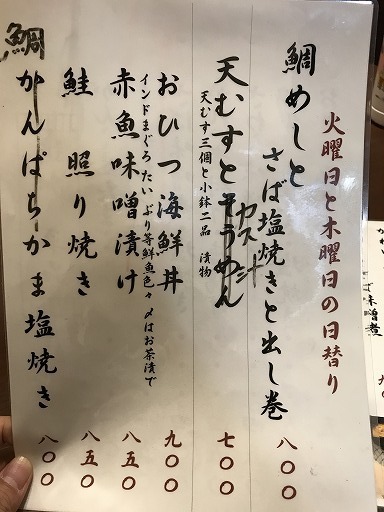 火曜日と木曜日の日替り
鯛めしと
さば塩焼きと出し巻 八〇〇
天むすとそうめん 七〇〇
カス汁
天むす三個と小鉢二品 漬物
おひつ海鮮丼 九〇〇
インドまぐろたい ぶり等鮮魚色々〆はお茶漬で
赤魚味噌漬け 八五〇
鮭 照り焼き 八五〇
鯛かんぱちかま塩焼き 八〇〇
味噌煮